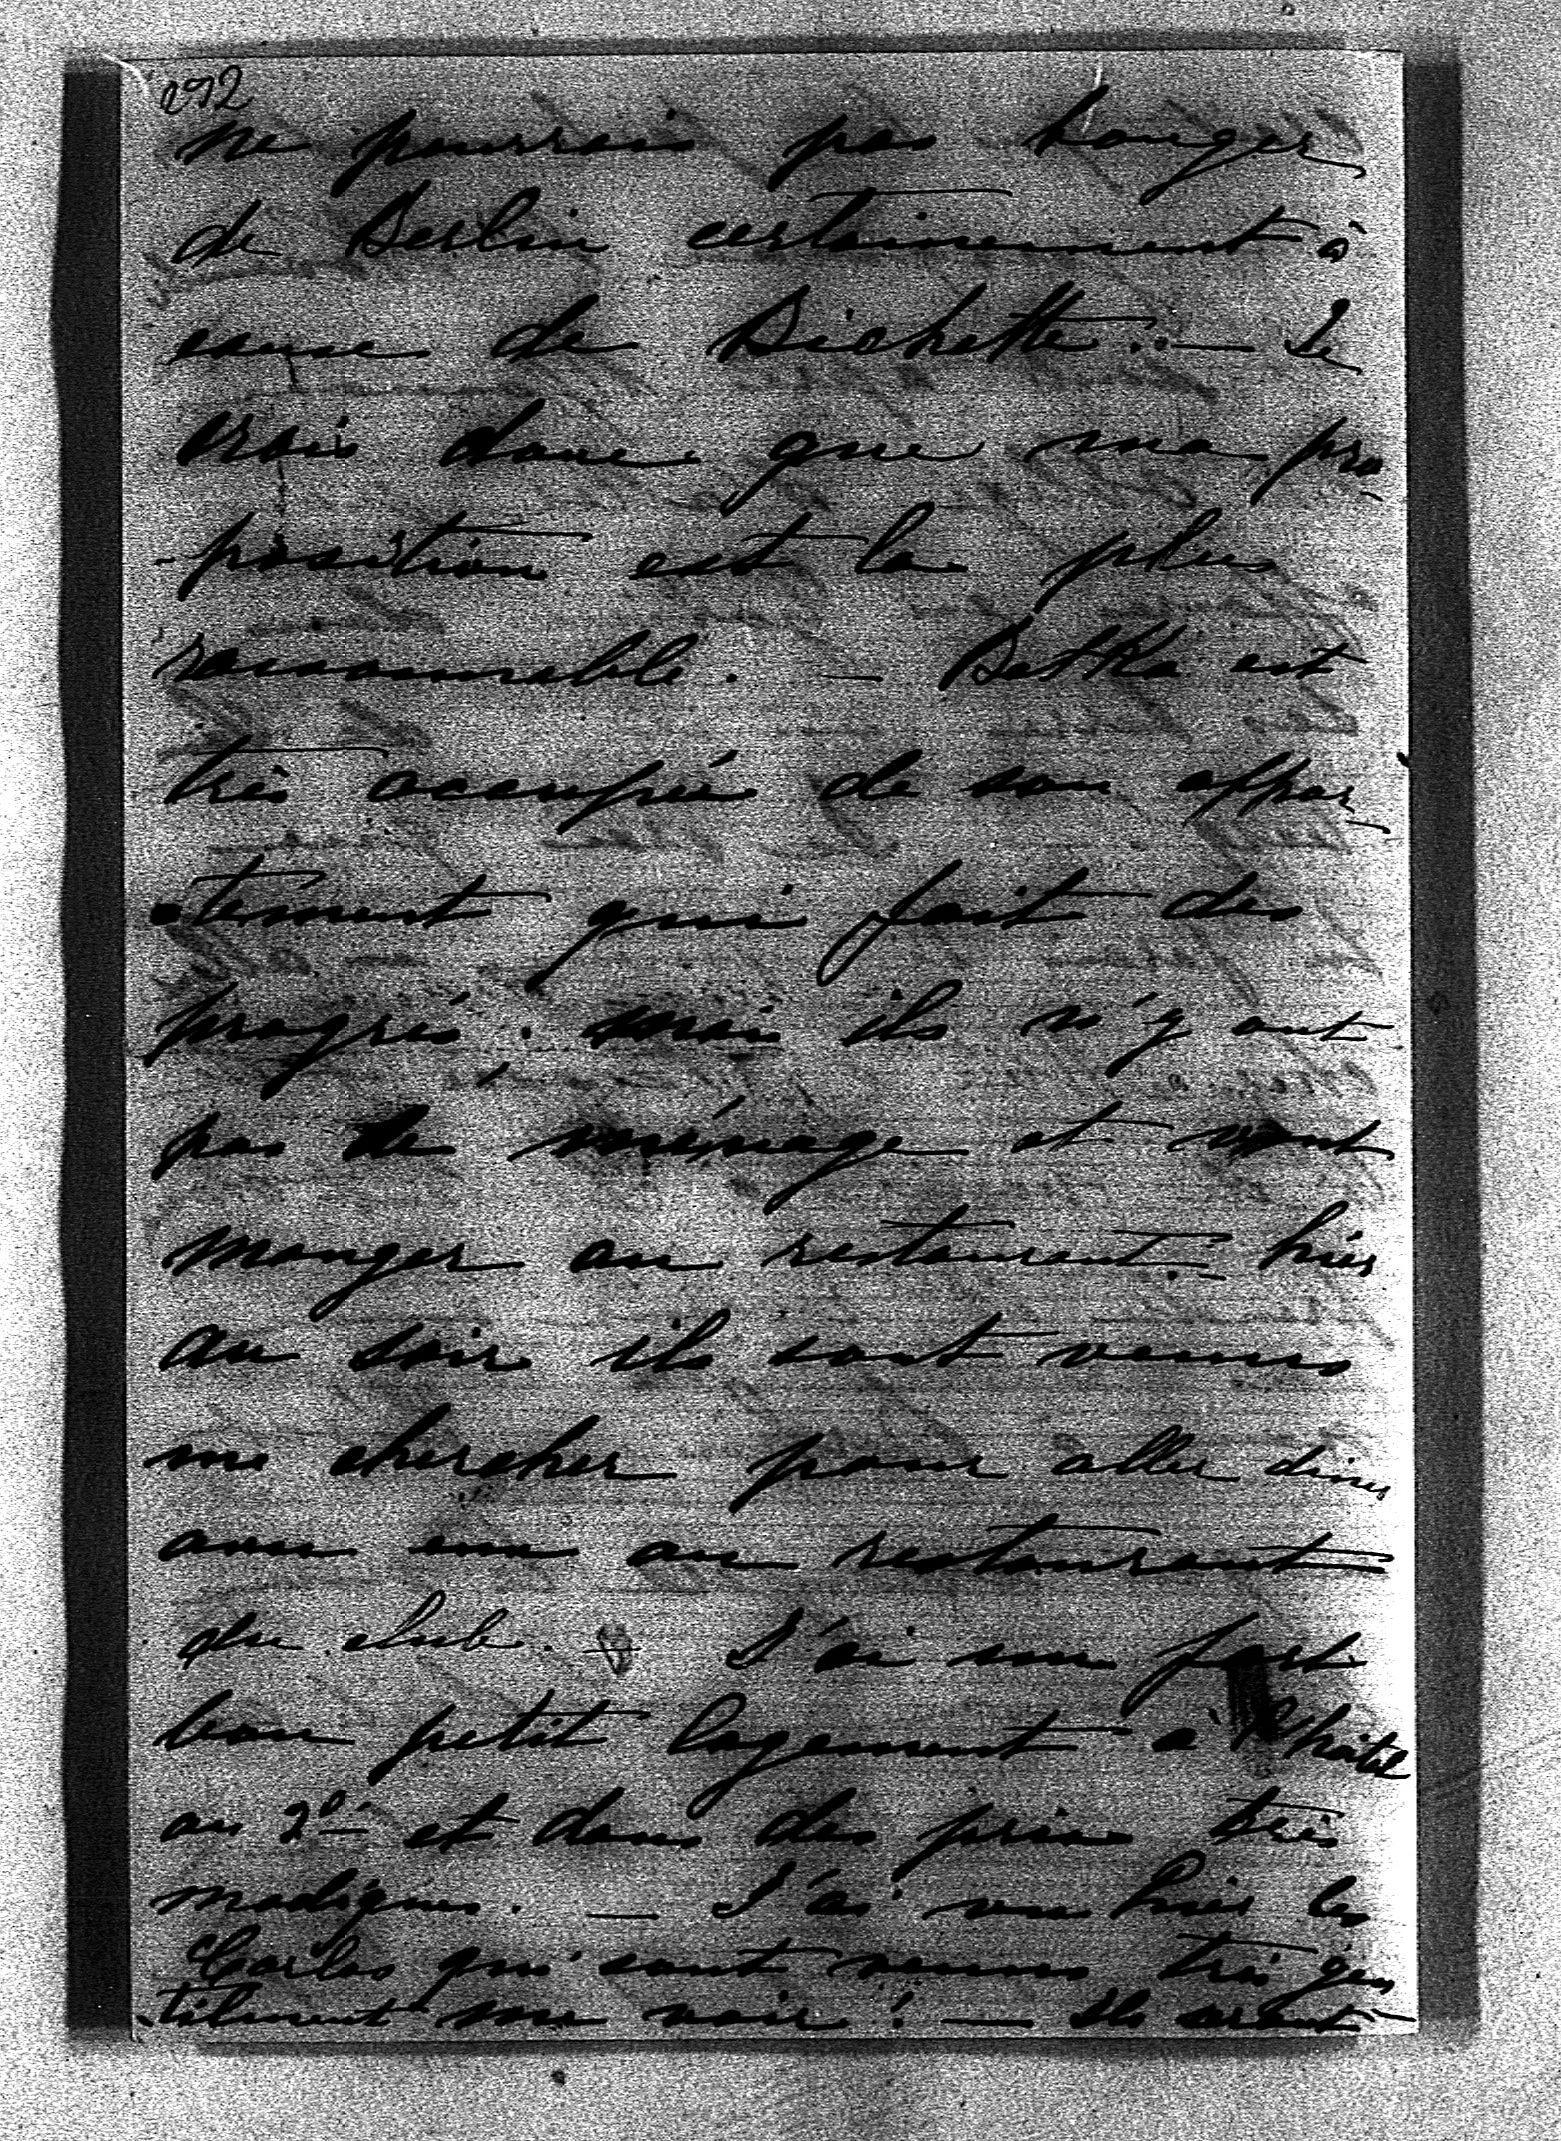 292
ne pourrais pas bouger
de Berlin certainement à
cause de Bichette. — Je
crois donc que ma pro
-position est la plus
raisonnable. — Betka est
très occupée de son appar
-tement qui fait des
progrès, mais ils n'y ont
pas de ménage et vont
manger au restaurant. — hier
au soir ils sont venus
me chercher pour aller diner
avec eux au restaurant
du club. — J'ai un fort
bon petit logement à l'hotel
au 2d et dans des prix très
modiques. — J'ai vu hier les
Carlos qui sont venus très gen
-tilment me voir! — Ils